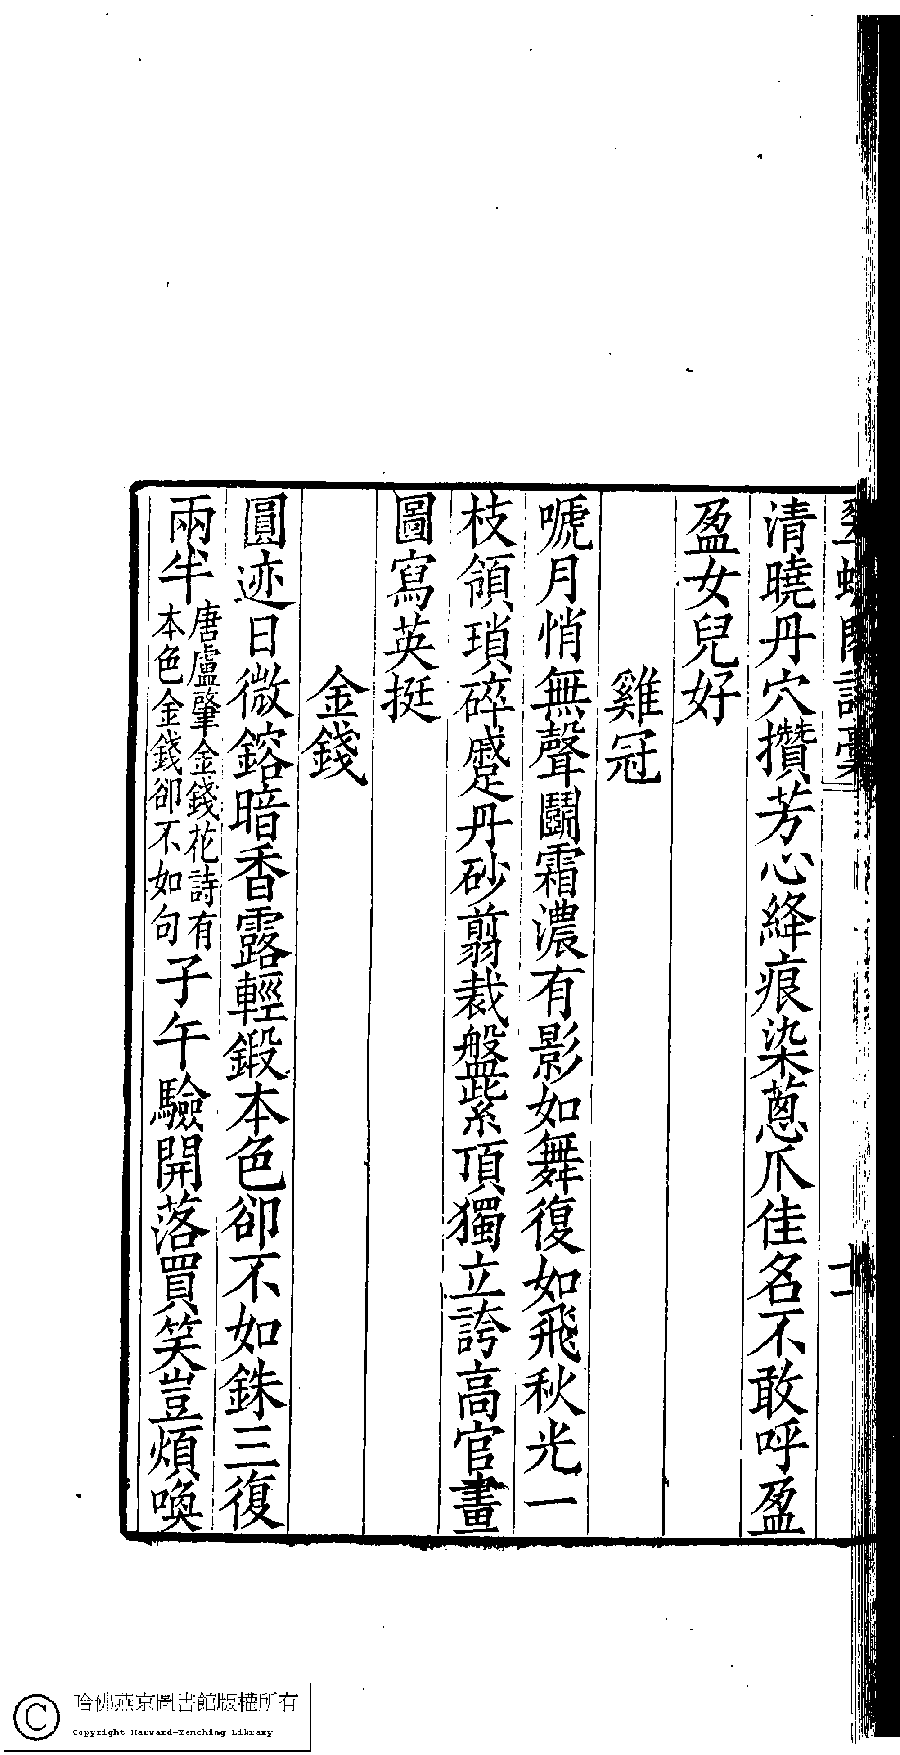 清曉丹穴攢芳心絳痕染蔥爪佳名不敢呼盈
盈女兒好
雞冠
嗁月悄無聲鬭霜濃有影如舞復如飛秋光一
枝領瑣碎蹙丹砂翦裁盤紫頂獨立誇高官畫
圖寫英挺
金錢
圓迹日微鎔暗香露輕鍛本色卻不如銖三復
兩半唐盧肇金錢花詩有本色金錢卻不如句子午驗開落買笑豈煩喚
哈佛燕京圖書館版權所有
Copyright Harvard-Yenching Library